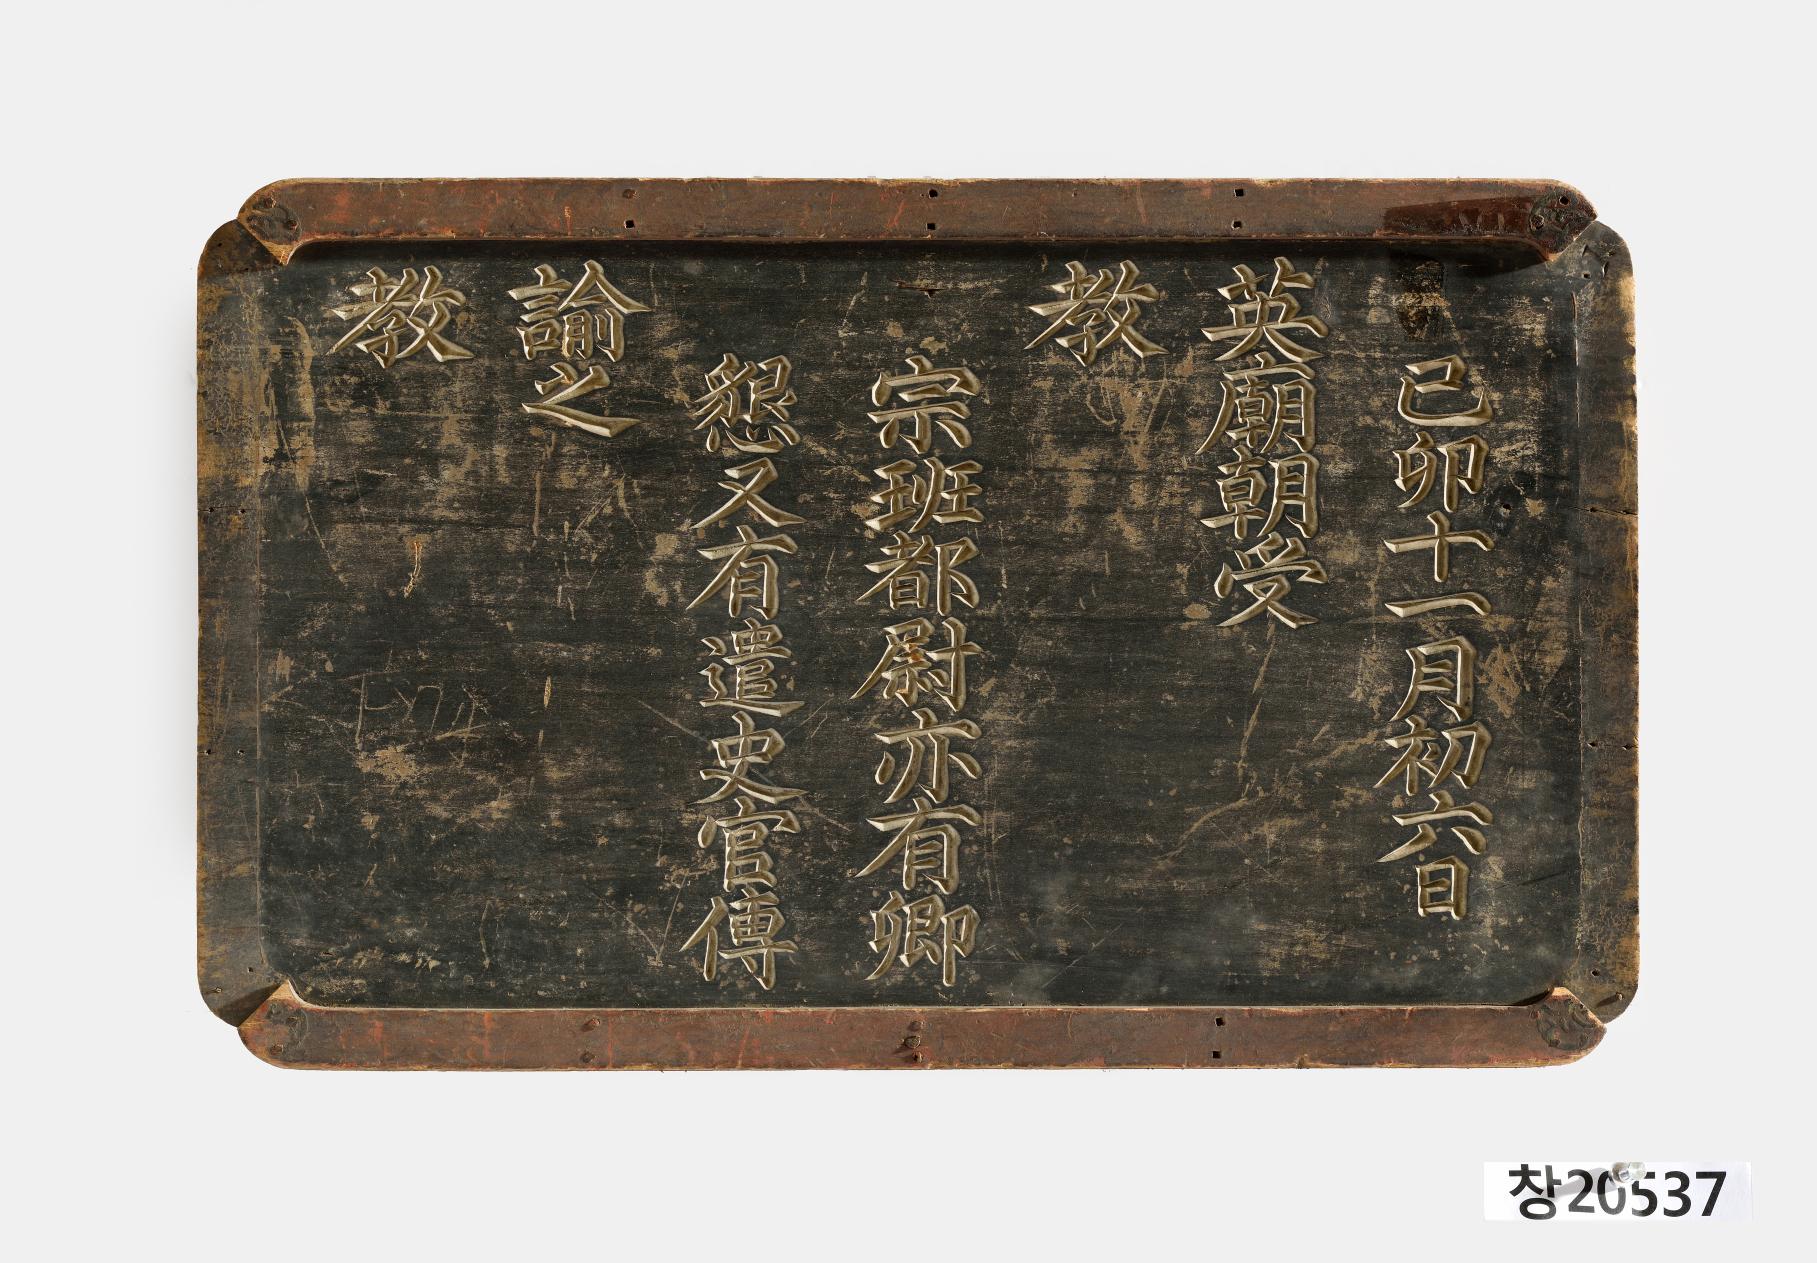 己卯十一月初六日
英廟朝受
教
宗班都尉亦有卿
懇又有遣史官傳
諭之
教
창20537